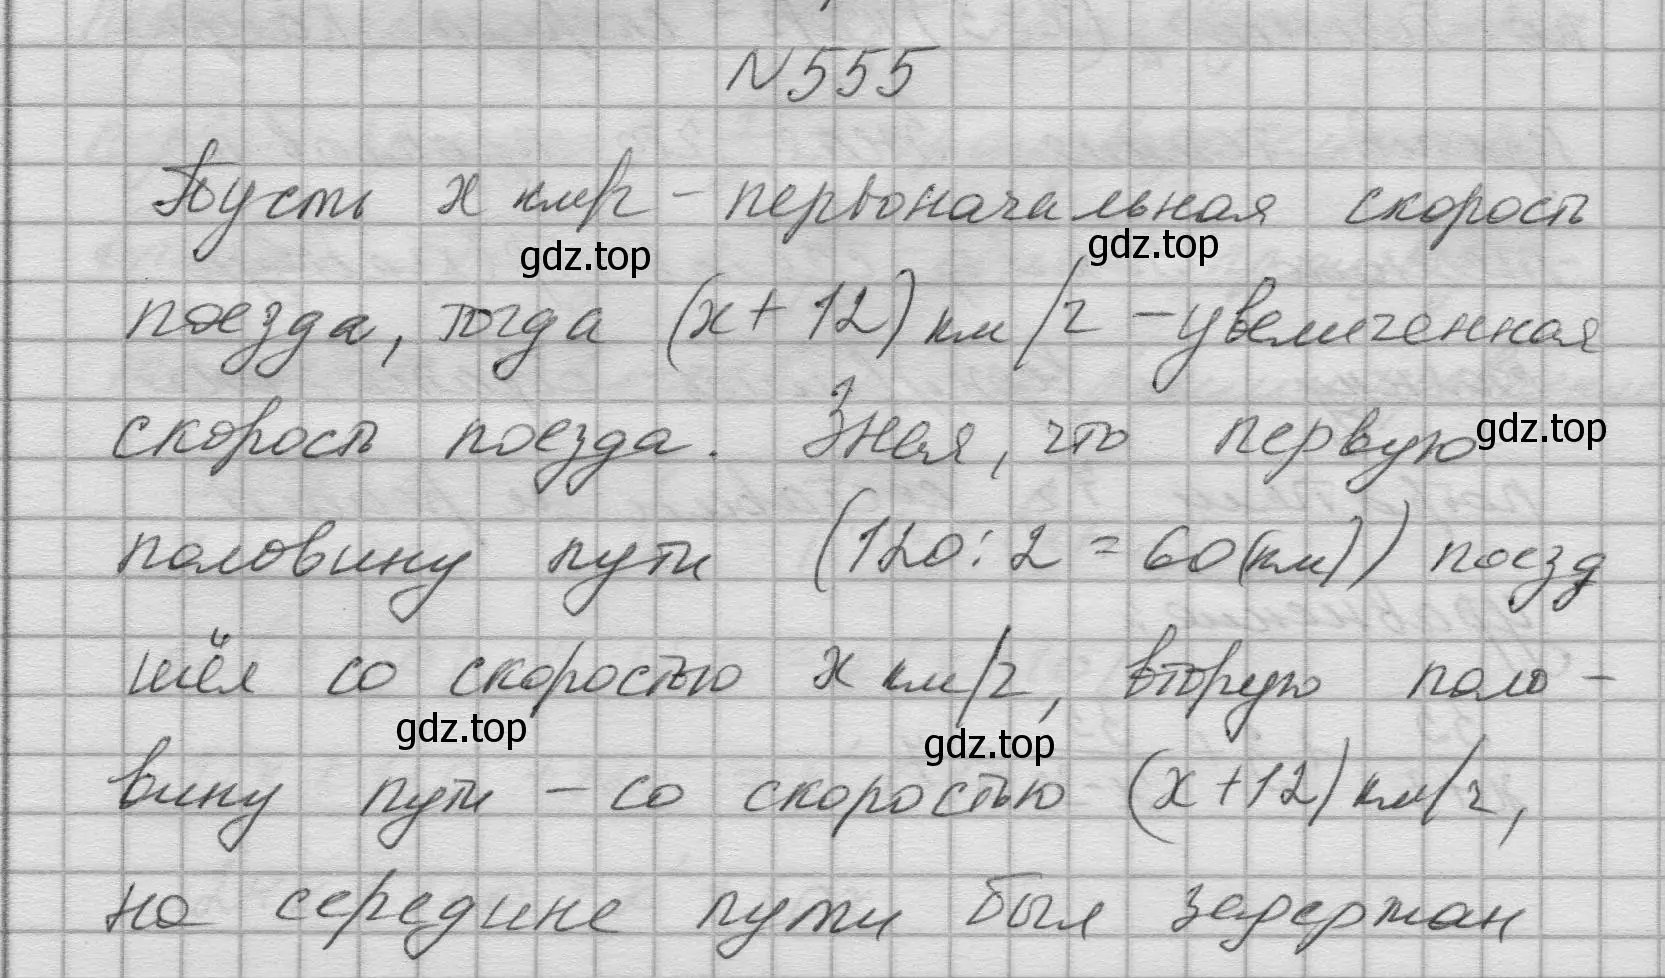 N555
Пусть x км/ч - первоначальная скорость
gdz.top gdz.top
поезда, тогда (x + 12) км/ч - увеличенная
скорость поезда. Зная, что первую gdz.top
половину пути (120 : 2 = 60 (км)) поезд
шёл со скоростью x км/ч, вторую поло-
gdz.top gdz.top
вину пути - со скоростью (x + 12) км/ч,
на середине пути был задержан